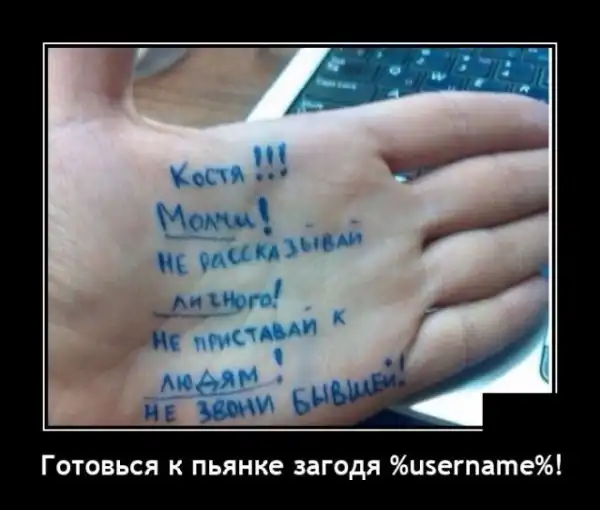 Костя!!!
Молчи!
НЕ РАССКАЗЫВАЙ
личного!
НЕ ПРИСТАВАЙ К
ЛЮДЯМ!
НЕ ЗВОНИ БЫВШЕЙ!
Готовься к пьянке загодя %username%!